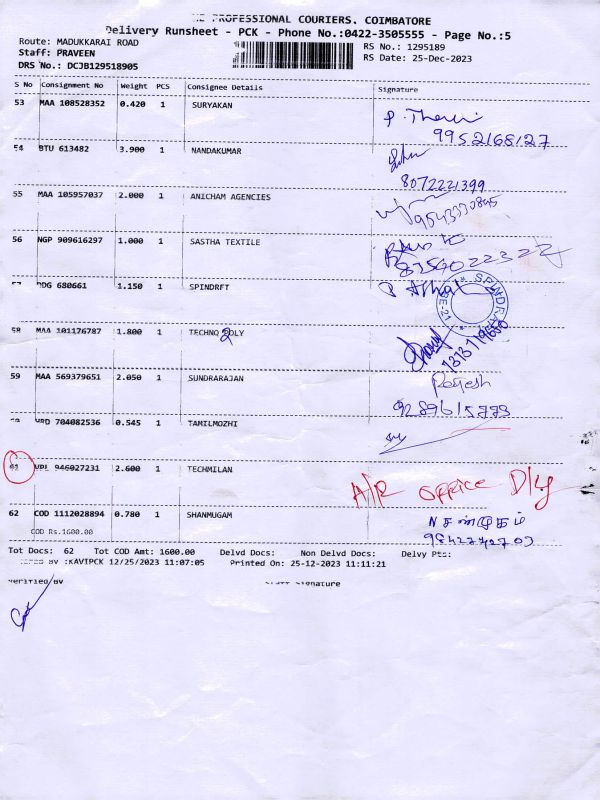 THE PROFESSIONAL COURIERS. COIMBATORE
Delivery Runsheet - PCK - Phone No.:0422-3505555 - Page No.:5
Route: MADUKKARAI ROAD
RS No.: 1295189
Staff: PRAVEEN
RS Date: 25-Dec-2023
DRS No.: DCJB129518905
S No Consignment No Weight PCS Consignee Details Signature
53 MAA 108528352 0.420 1 SURYAKAN
9952168127
54 BTU 613482 3.900 1 NANDAKUMAR
8072221399
55 MAA 105957037 2.000 1 ANICHAM AGENCIES
56 NGP 909616297 1.000 1 SASTHA TEXTILE
57 DDG 680661 1.150 1 SPINDRFT
58 MAA 101176787 1.800 1 TECHNO
59 MAA 569379651 2.050 1 SUNDRARAJAN
704082536 0.545 1 TAMILMOZHI
61 946027231 2.600 1 TECHMILAN
Office Dly
62 COD 1112028894 0.780 1 SHANMUGAM
COD Rs.1600.00
Tot Docs: 62 Tot COD Amt: 1600.00 Delvd Docs: Non Delvd Docs: Delvy Pts:
BY :KAVIPCK 12/25/2023 11:07:05 Printed On: 25-12-2023 11:11:21
Verified BY Staff Signature